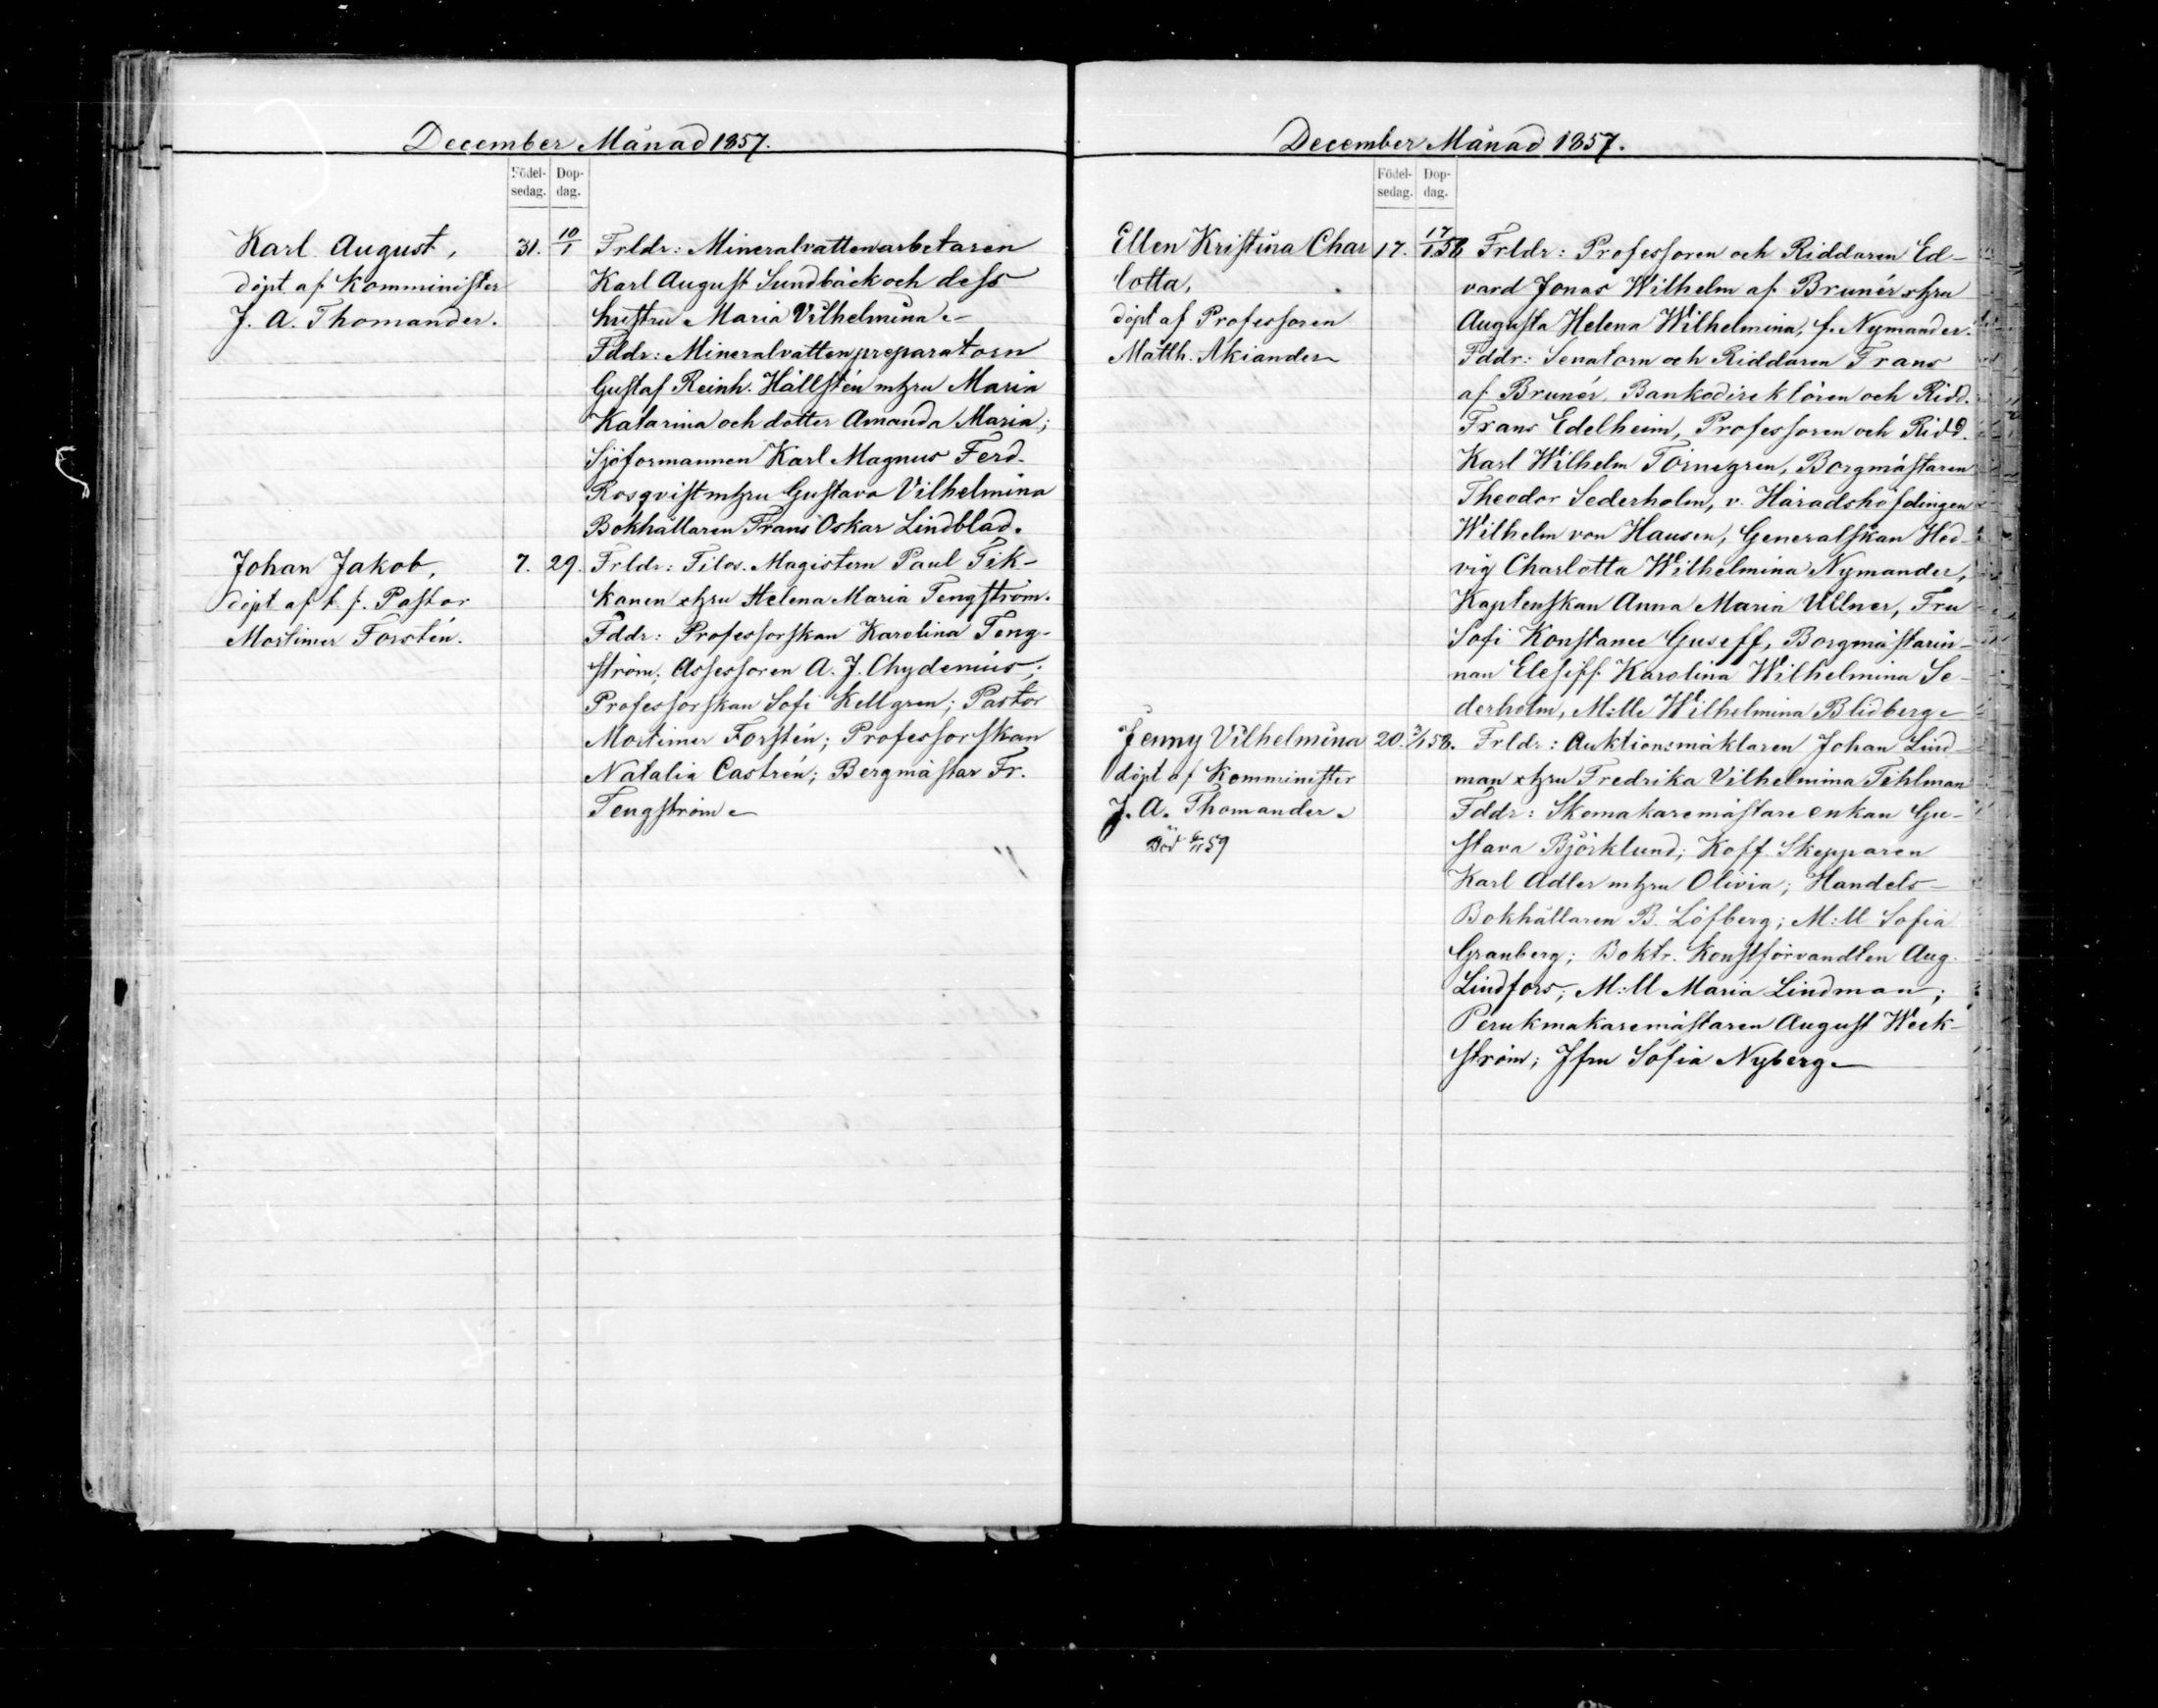 December Månad 1857.
Födel-sedag. Dop-dag.
Karl August,
döpt af Komminister
J. A. Thomander.
31. 10/1
Frldr: Mineralvattenarbetaren
Karl August Sundbäck och dess
hustru Maria Vilhelmina.
Fddr: Mineralvattenpreparatorn
Gustaf Reinh. Hällstén mhru Maria
Katarina och dotter Amanda Maria;
Sjöformannen Karl Magnus Ferd.
Rosqvist mhru Gustava Vilhelmina
Bokhållaren Frans Oskar Lindblad.
Johan Jakob,
döpt af t. f. Pastor
Mortimer Forstén.
7. 29.
Frldr: Filos. Magistern Paul Tik-
kanen o hru Helena Maria Tengström.
Fddr: Professorskan Karolina Teng-
ström; Assessoren A. J. Chydenius;
Professorskan Sofi Kellgren; Pastor
Mortimer Forstén; Professorskan
Natalia Castrén; Bergmästar Fr.
Tengström
December Månad 1857.
Födel-sedag. Dop-dag.
Ellen Kristina Char
lotta,
döpt af Professoren
Matth. Akiander
17. 17/1 58
Frldr: Professoren och Riddaren Ed-
vard Jonas Wilhelm af Brunér o hru
Augusta Helena Wilhelmina, f. Nymander.
Fddr: Senatorn och Riddaren Frans
af Brunér, Bankodirektören och Ridd.
Frans Edelheim, Professoren och Ridd.
Karl Wilhelm Törnegren, Borgmästaren
Theodor Sederholm, v. Häradshöfdingen
Wilhelm von Hausen, Generalskan Hed-
vig Charlotta Wilhelmina Nymander,
Kaptenskan Anna Maria Ullner, Fru
Sofi Konstance Guseff, Borgmästarin-
nan Karolina Wilhelmina Se-
derholm, M:lle Wilhelmina Blidberg
Jenny Vilhelmina
döpt af Komminister
J. A. Thomander.
Död 59
20. 58.
Frldr: Auktionsmäklaren Johan Lind-
man o hru Fredrika Vilhelmina Tihlman
Fddr: Skomakaremästare enkan Gu-
stava Björklund; Koff. Skepparen
Karl Adler mhru Olivia; Handels-
Bokhållaren B. Löfberg; M:ll Sofia
Granberg; Boktr. Konstförvandten Aug.
Lindfors; M:ll Maria Lindman;
Perukmakaremästaren August Weck-
ström; Jfru Sofia Nyberg